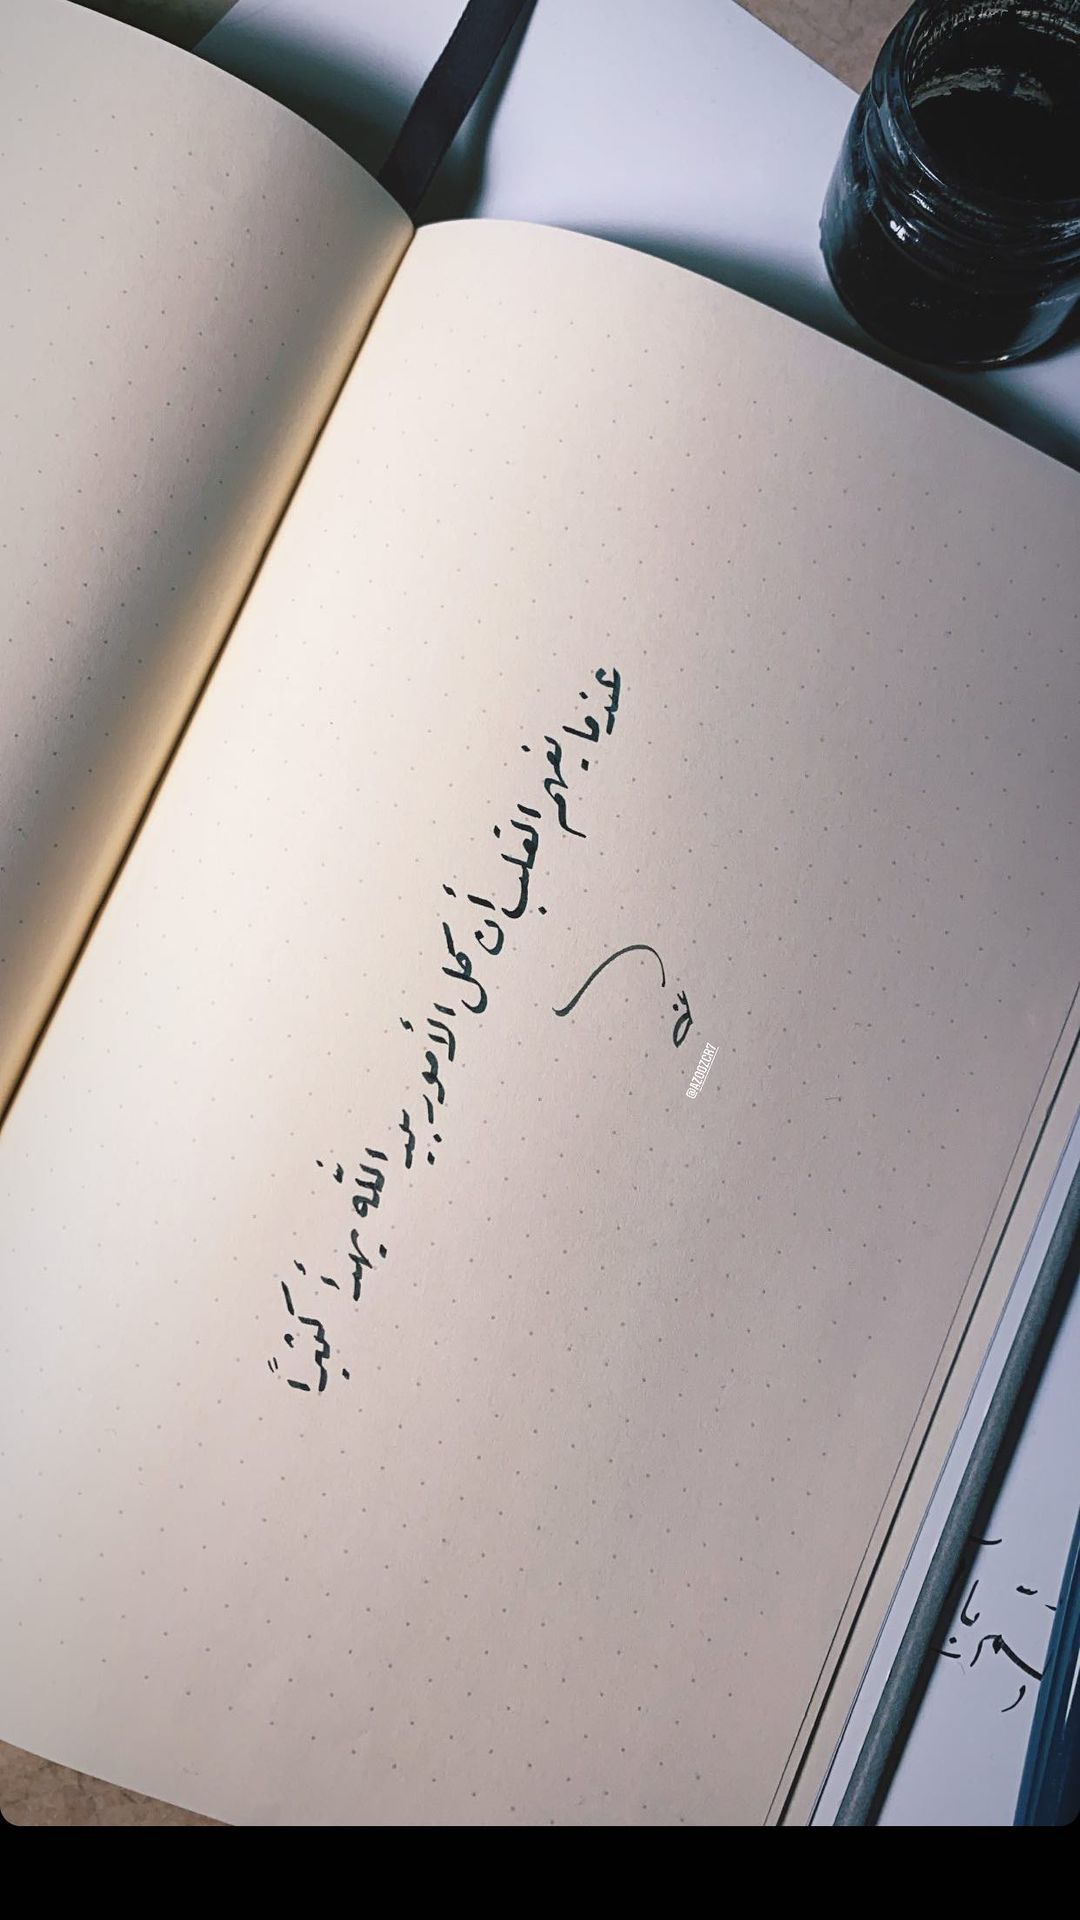 عندما يفهم القلب أن كل الأمور بيد الله يهدأ كثيراً
@AZOOZCR7